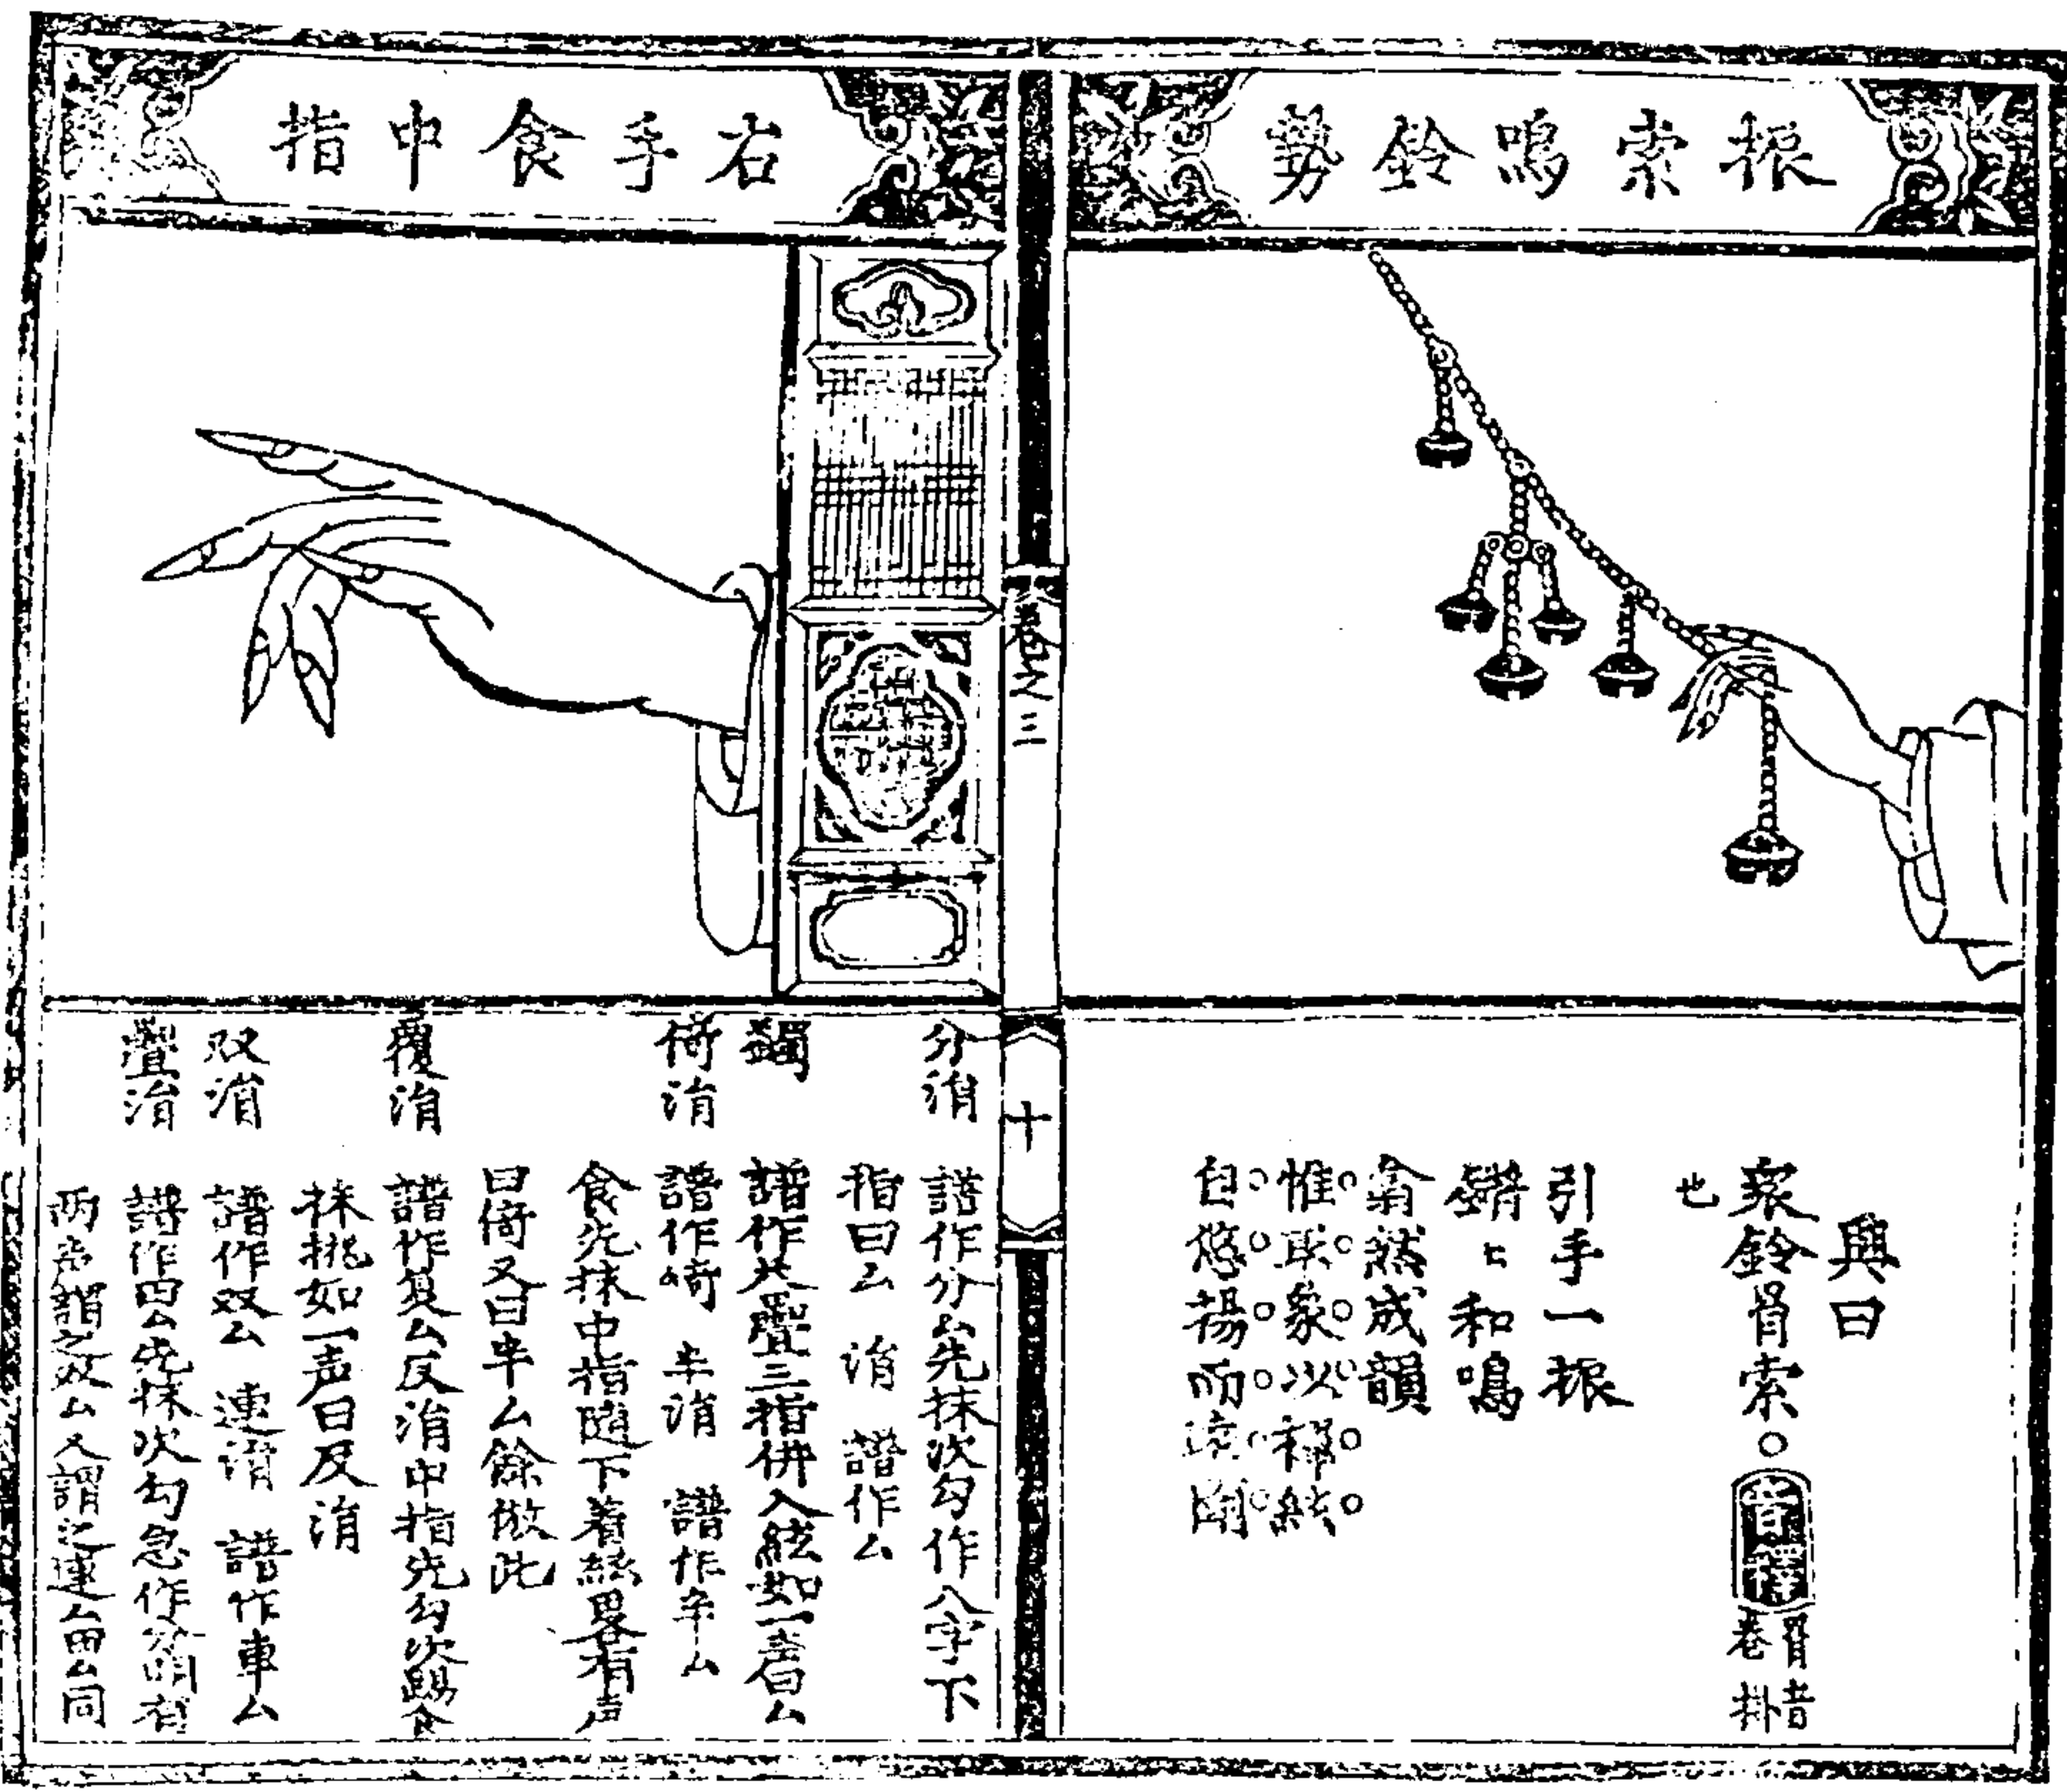 振索鳴鈴勢
興曰
衆鈴胃索○音釋胃音卷掛
也
引手一振
鏘〻和鳴
翕然成韻
惟取象以釋絃
自悠揚而
卷之三
十
右手食中指
分涓 譜作分厶先抹次勾作八字下
指曰厶 涓 譜作厶
蠲 譜作 疊三指併入絃如一声曰厶
倚涓 譜作 半涓 譜作半厶
食先抹中指隨下着絃畧有声
曰倚又曰半厶餘倣此
覆涓 譜作复厶反涓中指先勾次踢食
抹挑如一声曰反涓
双涓 譜作双厶 連涓 譜作車厶
疊涓 譜作 厶先抹次勾急作 涓有
両声謂之双厶又謂之連厶 厶同